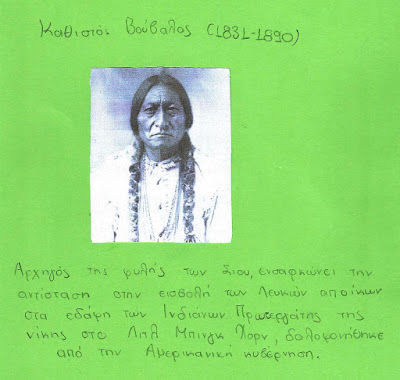 Καθιστός Βούβαλος (1831-1890)
Αρχηγός της φυλής των Σιου, ενσαρκώνει την
αντίσταση στην εισβολή των Λευκών αποίκων
στα εδάφη των Ινδιάνων Πρωτεργάτης της
νίκης στο Λιτλ Μπιγκ Χορν, δολοφονήθηκε
από την Αμερικανική κυβέρνηση.